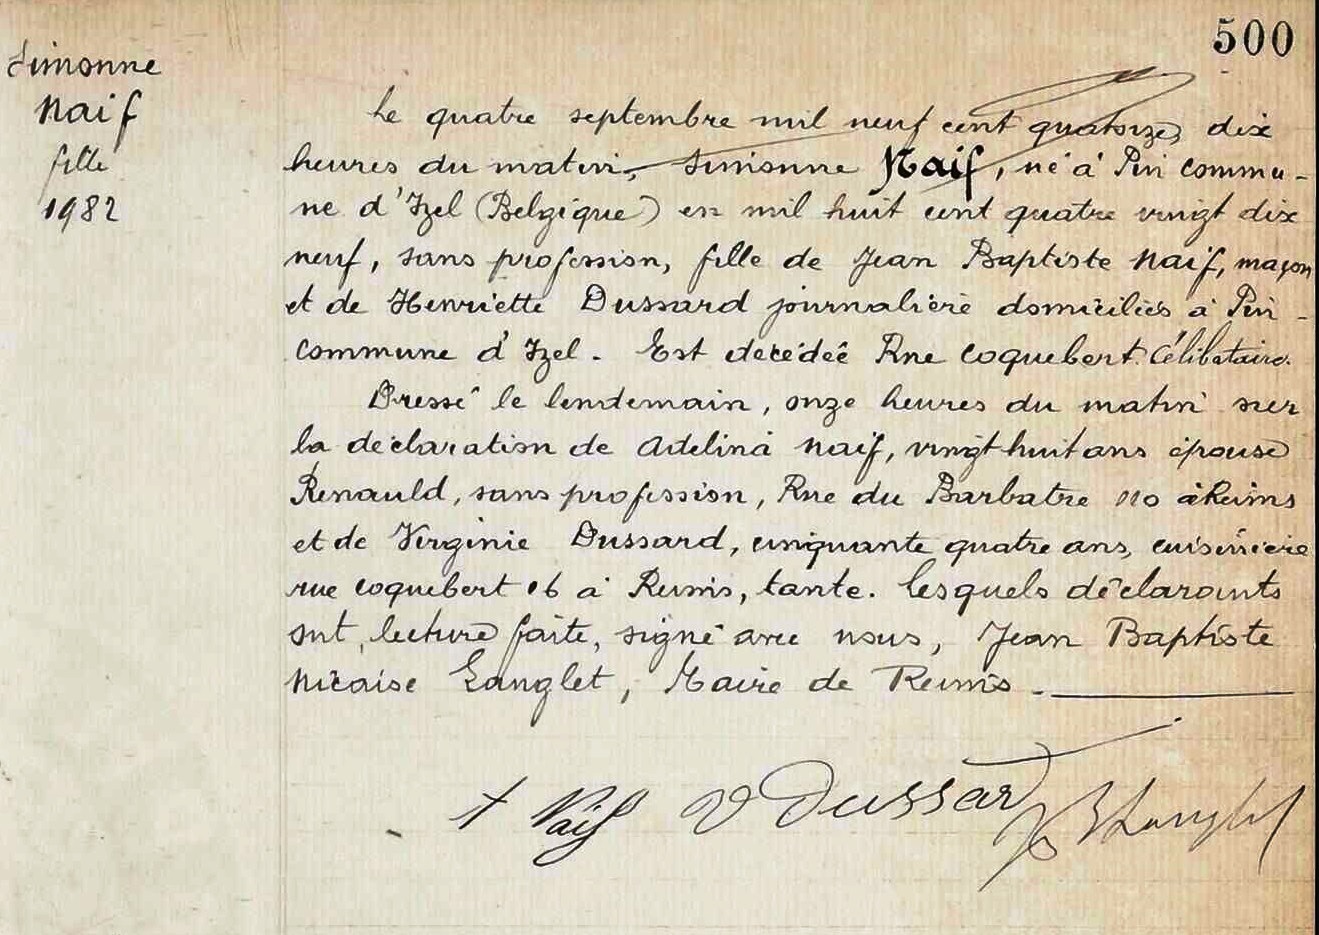 500
Simonne
Naif
fille
1982
Le quatre septembre mil neuf cent quatorze, dix
heures du matin, Simonne Naif, né à Pin commu-
ne d'Izel (Belgique) en mil huit cent quatre vingt dix
neuf, sans profession, fille de Jean Baptiste Naif, maçon
et de Henriette Dussard journalière domiciliés à Pin -
commune d'Izel. Est décédée Rue Coquebert. Célibataire.
Dressé le lendemain, onze heures du matin sur
la déclaration de Adelina Naif, vingt huit ans épouse
Renauld, sans profession, Rue du Barbatre 110 à Reims
et de Virginie Dussard, cinquante quatre ans, cuisinière
rue Coquebert 16 à Reims, tante. Lesquels déclarants
ont, lecture faite, signé avec nous, Jean Baptiste
Nicaise Langlet, Maire de Reims.
Naif V Dussard Langlet